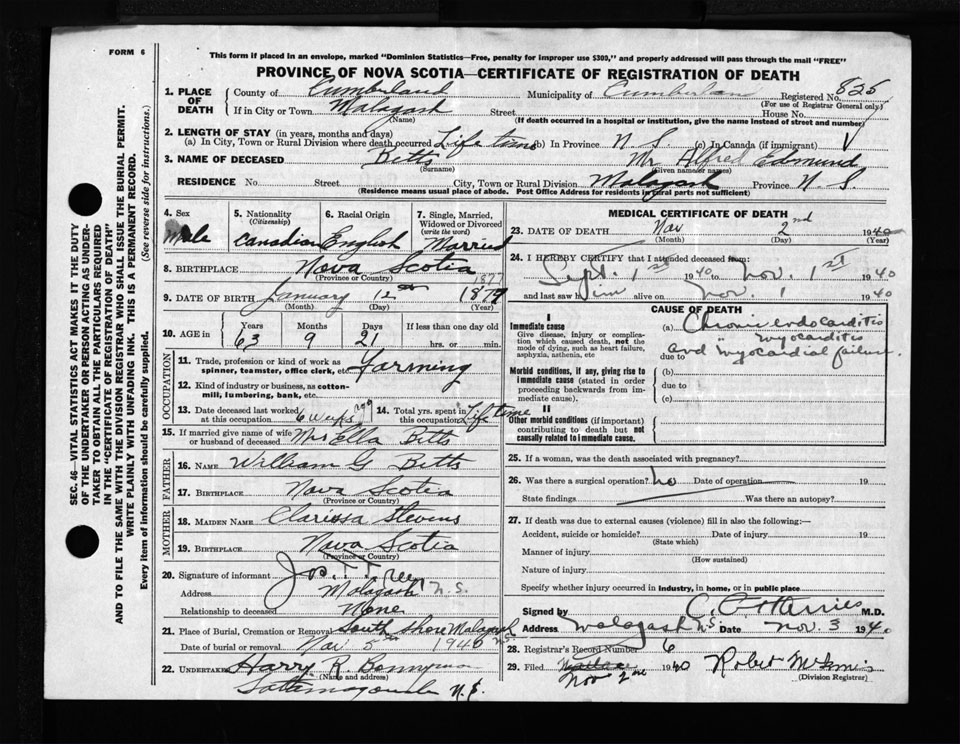 FORM 6
This form if placed in an envelope, marked "Dominion Statistics—Free, penalty for improper use $300," and properly addressed will pass through the mail "FREE"
PROVINCE OF NOVA SCOTIA—CERTIFICATE OF REGISTRATION OF DEATH
SEC. 46—VITAL STATISTICS ACT MAKES IT THE DUTY
OF THE UNDERTAKER OR PERSON ACTING AS UNDER-
TAKER TO OBTAIN ALL THE PARTICULARS REQUIRED
IN THE "CERTIFICATE OF REGISTRATION OF DEATH"
AND TO FILE THE SAME WITH THE DIVISION REGISTRAR WHO SHALL ISSUE THE BURIAL PERMIT.
WRITE PLAINLY WITH UNFADING INK. THIS IS A PERMANENT RECORD.
Every item of information should be carefully supplied. (See reverse side for instructions.)
1. PLACE OF DEATH County of Cumberland Municipality of Cumberland Registered No. 825
(For use of Registrar General only)
If in City or Town Malagash Street House No.
(Name) (If death occurred in a hospital or institution, give the name instead of street and number)
2. LENGTH OF STAY (in years, months and days)
(a) In City, Town or Rural Division where death occurred Life time (b) In Province N S. (c) In Canada (if immigrant)
3. NAME OF DECEASED Betts Mr Alfred Edmund
(Surname) (Given name or names)
RESIDENCE No. Street City, Town or Rural Division Malagash Province N. S.
(Residence means usual place of abode. Post Office Address for residents in rural parts not sufficient)
4. Sex 5. Nationality 6. Racial Origin 7. Single, Married,
(Citizenship) Widowed or Divorced
(write the word)
Male Canadian English Married
8. BIRTHPLACE Nova Scotia
(Province or Country)
1877
9. DATE OF BIRTH January 12th 1877
(Month) (Day) (Year)
10. AGE in Years Months Days If less than one day old
63 9 21 hrs. or min.
OCCUPATION
11. Trade, profession or kind of work as
spinner, teamster, office clerk, etc. Farming
12. Kind of industry or business, as cotton-
mill, lumbering, bank, etc.
13. Date deceased last worked at this occupation 6 Weeks ago 14. Total yrs. spent in this occupation Life time
15. If married give name of wife
or husband of deceased Mrs Ella Betts
FATHER
16. NAME William G Betts
17. BIRTHPLACE Nova Scotia
(Province or Country)
MOTHER
18. MAIDEN NAME Clarissa Stevens
19. BIRTHPLACE Nova Scotia
(Province or Country)
20. Signature of informant Jos. T Treen
Address Malagash N.S.
Relationship to deceased None
21. Place of Burial, Cremation or Removal South Shore Malagash N.S.
Date of burial or removal Nov 5th 1940
22. UNDERTAKER Harry R. Bonnyman
(Name and address)
Tattamagouche N.S.
MEDICAL CERTIFICATE OF DEATH
23. DATE OF DEATH Nov 2nd 1940
(Month) (Day) (Year)
24. I HEREBY CERTIFY that I attended deceased from:
Sept. 1st 1940 to Nov. 1st 1940
and last saw him alive on Nov. 1 1940
CAUSE OF DEATH
I
Immediate cause
Give disease, injury or complica-
tion which caused death, not the
mode of dying, such as heart failure,
asphyxia, asthenia, etc
(a) Chronic endocarditis
" myocarditis
due to and myocardial failure.
Morbid conditions, if any, giving rise to
immediate cause (stated in order
proceeding backwards from im-
mediate cause).
(b)
due to
(c)
II
Other morbid conditions (if important)
contributing to death but not
causally related to immediate cause.
25. If a woman, was the death associated with pregnancy?
26. Was there a surgical operation? no Date of operation 19
State findings Was there an autopsy?
27. If death was due to external causes (violence) fill in also the following:—
Accident, suicide or homicide? Date of injury 19
(State which)
Manner of injury
(How sustained)
Nature of injury
Specify whether injury occurred in industry, in home, or in public place
Signed by M.D.
Address Malagash N.S. Date Nov. 3 1940
28. Registrar's Record Number 6
29. Filed Nov 2nd 1940 Robert
(Division Registrar)